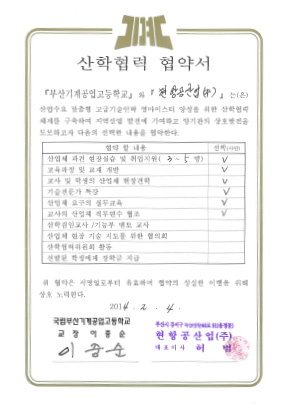 산학협력 협약서
『부산기계공업고등학교』와 『현항공산업(주)』는(은)
산업수요 맞춤형 고급기술인력 영마이스터 양성을 위한 산학협력
체제를 구축하여 지역산업 발전에 기여하고 양기관의 상호발전을
도모하고자 다음의 선택한 내용을 협약한다.
협약 할 내용 선택(사인)
산업체 파견 현장실습 및 취업지원( 3~5 명) √
교육과정 및 교재 개발 √
교사 및 학생의 산업체 현장견학 √
기술전문가 특강 √
산업체 요구의 실무교육 √
교사의 산업체 직무연수 협조 √
산학겸임교사 /기능부 멘토 교사
산업체 현장 기술 지도를 위한 협의회
산학협력위원회 활동
선발된 학생에게 장학금 지급
위 협약은 서명일로부터 유효하며 협약의 성실한 이행을 위해
상호 노력한다.
2014. 2. 4.
국립부산기계공업고등학교
교장 이중순
이중순
현항공산업(주)
대표이사 허